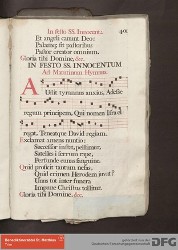 In festo SS. Innocent.
Et angeli canunt Deo:
Palamq; fit pastoribus
Pastor creator omnium.
Gloria tibi Domine, &c.
IN FESTO SS. INNOCENTUM
Ad Matutinum Hymnus.
Audit tyrannus anxius, Adesse
regum principem, Qui nomen Israel
regat, Teneatque David regiam.
Exclamat amens nuntio:
Successor instat, pellimur:
Satelles i, ferrum rape,
Perfunde cunas sanguine.
Quid proficit tantum nefas,
Quid crimen Herodem juvat?
Unus tot inter funera
Impune Christus tollitur.
Gloria tibi Domine, &c.
DFG